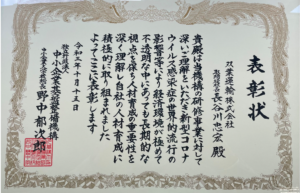 表彰状
双葉運輸株式会社
長谷川忠宏 殿
貴殿は当機構の研修事業に対して
深いご理解をいただき新型コロナ
ウイルス感染症の世界的流行の
影響等にて経済環境が極めて
不透明な中にあっても長期的な
視点を保ち人材育成の重要性を
深く理解し自社の人材育成に
積極的に取り組まれました
よってここに表彰します
令和三年十月十五日
独立行政法人
中小企業基盤整備機構
中小企業大学校長 野中都次郎